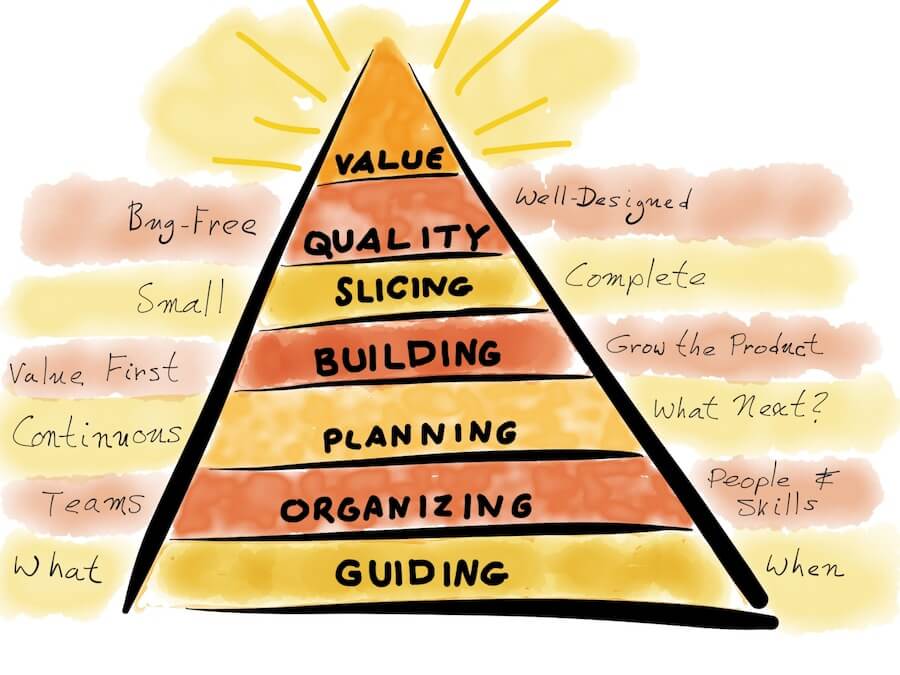 VALUE
Bug-Free
QUALITY
Well-Designed
Small
SLICING
Complete
Value First
BUILDING
Grow the Product
Continuous
PLANNING
What Next?
Teams
ORGANIZING
People &
Skills
What
GUIDING
When